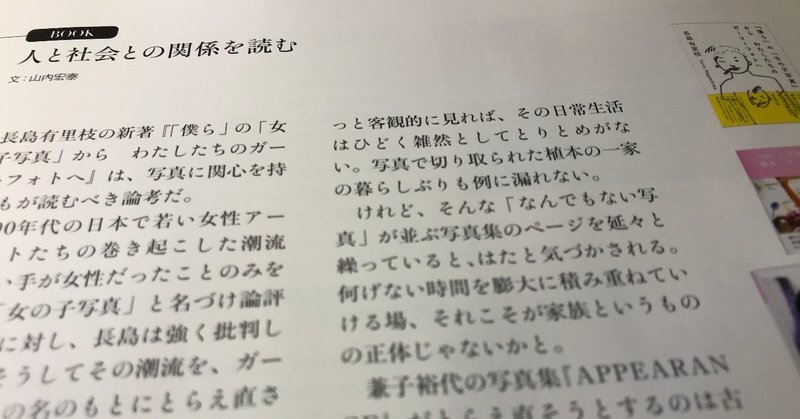 BOOK
人と社会との関係を読む
文：山内宏泰
長島有里枝の新著『「僕ら」の「女
子写真」から　わたしたちのガー
トフォトへ』は、写真に関心を持
もが読むべき論考だ。
00年代の日本で若い女性アー
トたちの巻き起こした潮流
い手が女性だったことのみを
「女の子写真」と名づけ論評
に対し、長島は強く批判し
そうしてその潮流を、ガー
の名のもとにとらえ直さ
っと客観的に見れば、その日常生活
はひどく雑然としてとりとめがな
い。写真で切り取られた植本の一家
の暮らしぶりも例に漏れない。
けれど、そんな「なんでもない写
真」が並ぶ写真集のページを延々と
繰っていると、はたと気づかされる。
何げない時間を膨大に積み重ねてい
ける場、それこそが家族というもの
の正体じゃないかと。
兼子裕代の写真集『APPEARAN
がとらえ直そうとするのは古
「僕ら」の「女の子写真」
から わたしたちの
ガーリーフォトへ
長島有里枝